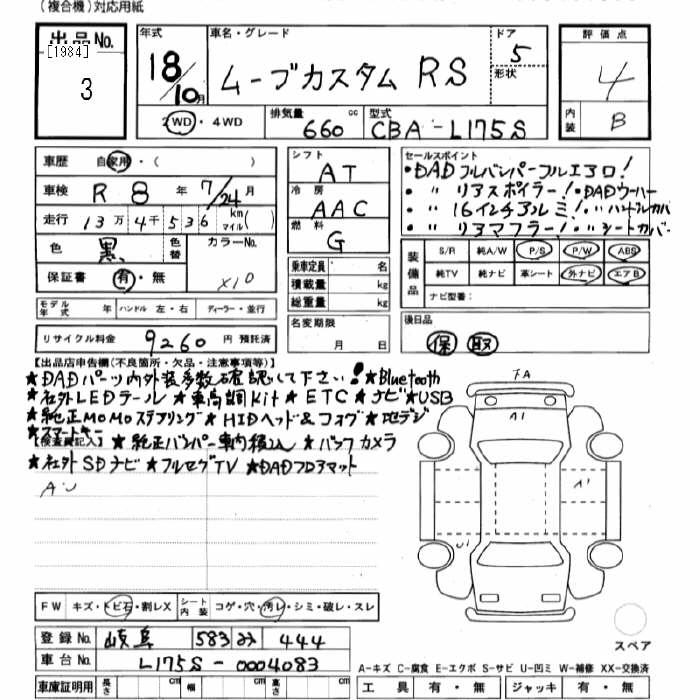 (複合機)対応用紙
出品No.
[1984]
3
年式
18/10月
車名・グレード
ムーブカスタム RS
ドア
5
形状
評価点
4
内装
B
2WD・4WD
排気量
660 cc
型式
CBA-L175S
車歴 自家用・( )
車検 R 8 年 7/24 月
走行 13万4千536 km マイル( )
色 黒 色替
カラーNo.
X10
保証書 有・無
モデル年式 年 ハンドル 左・右 ディーラー・並行
リサイクル料金 9260 円 預託済
シフト
AT
冷房
AAC
燃料
G
乗車定員 名
積載量 kg
総重量 kg
名変期限
月 日
セールスポイント
・DADフルバンパーフルエアロ!
・〃 リアスポイラー!・DADウーハー
・〃 16インチアルミ!・〃ハンドルカバー
・〃 リアマフラー!・〃シートカバー
装備品
S/R 純A/W P/S P/W ABS
純TV 純ナビ 革シート 外ナビ エアB
ナビ型番:
後日品
保 取
【出品店申告欄(不良箇所・欠品・注意事項等)】
★DADパーツ内外装多数を確認して下さい!★Bluetooth
★社外LEDテール ★車高調Kit ★ETC ★ナビ★USB
★純正MOMOステアリング★HIDヘッド&フォグ★地デジ
★スマートキー
【検査員記入】★純正バンパー車内積込 ★バックカメラ
★社外SDナビ ★フルセグTV ★DADフロアマット
AU
FA
A1
A1
U1
スペア
FW キズ・トビ石・割レX シート内装 コゲ・穴・汚レ・シミ・破レ・スレ
登録No. 岐阜 583 み 444
車台No. L175S-0004083
A-キズ C-腐食 E-エクボ S-サビ U-凹ミ W-補修 XX-交換済
車庫証明用 長さ cm 幅 cm 高さ cm 工具 有・無 ジャッキ 有・無